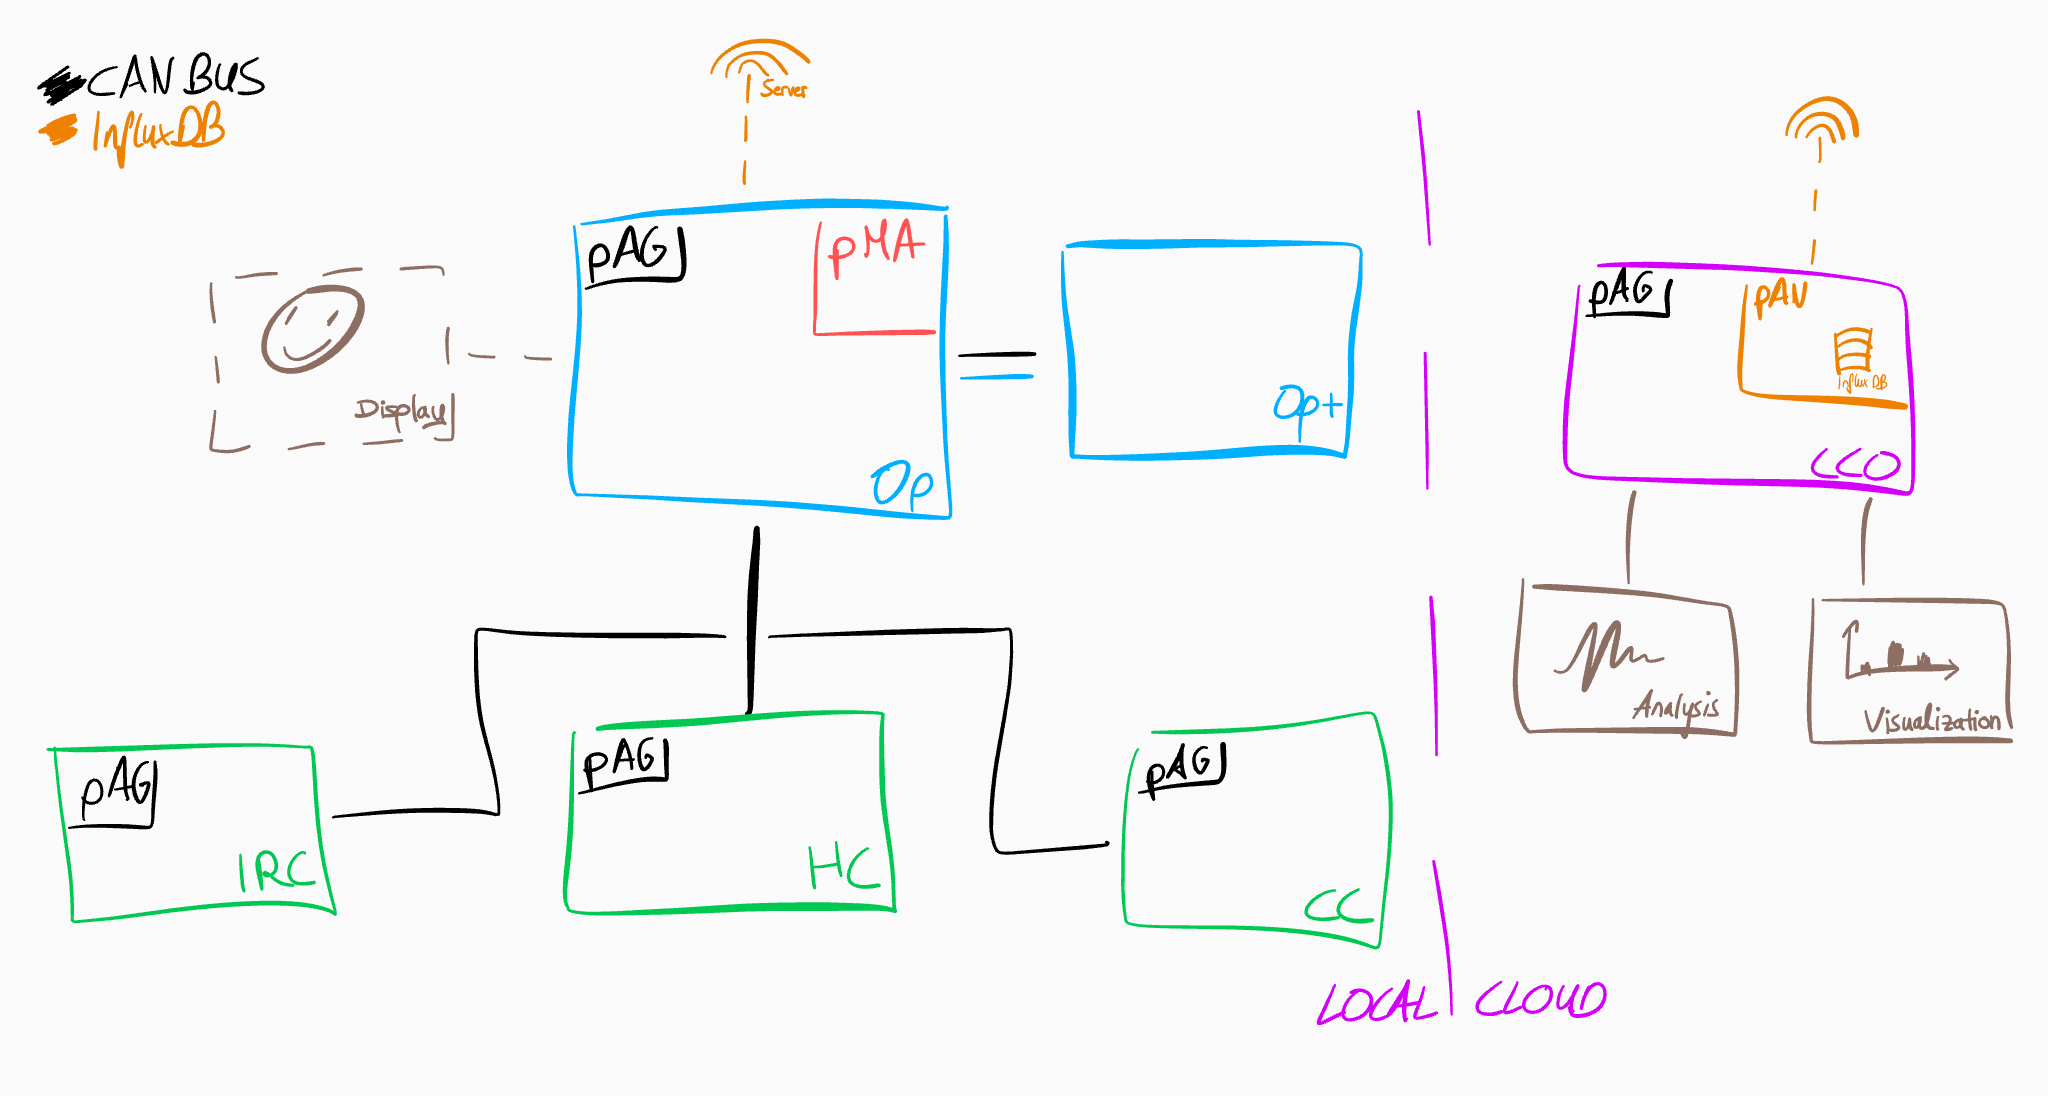 CAN BUS
InfluxDB
Server
pAG
pMA
Op
Display
Op+
pAG
pAN
Influx DB
CCO
Analysis
Visualization
pAG
IRC
pAG
HC
pAG
CC
LOCAL
CLOUD